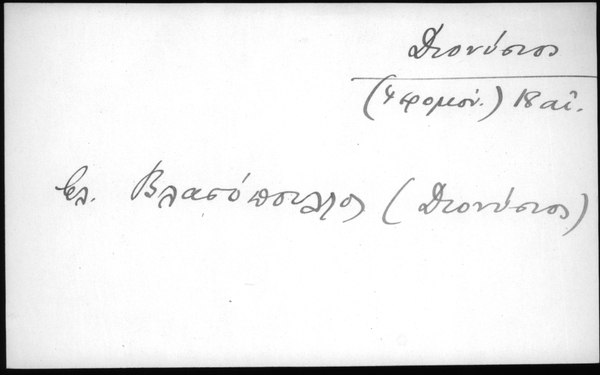 Διονύσιος
(Ἱερομον.) 18 αἰ.
βλ. Βλασόπουλλος (Διονύσιος)